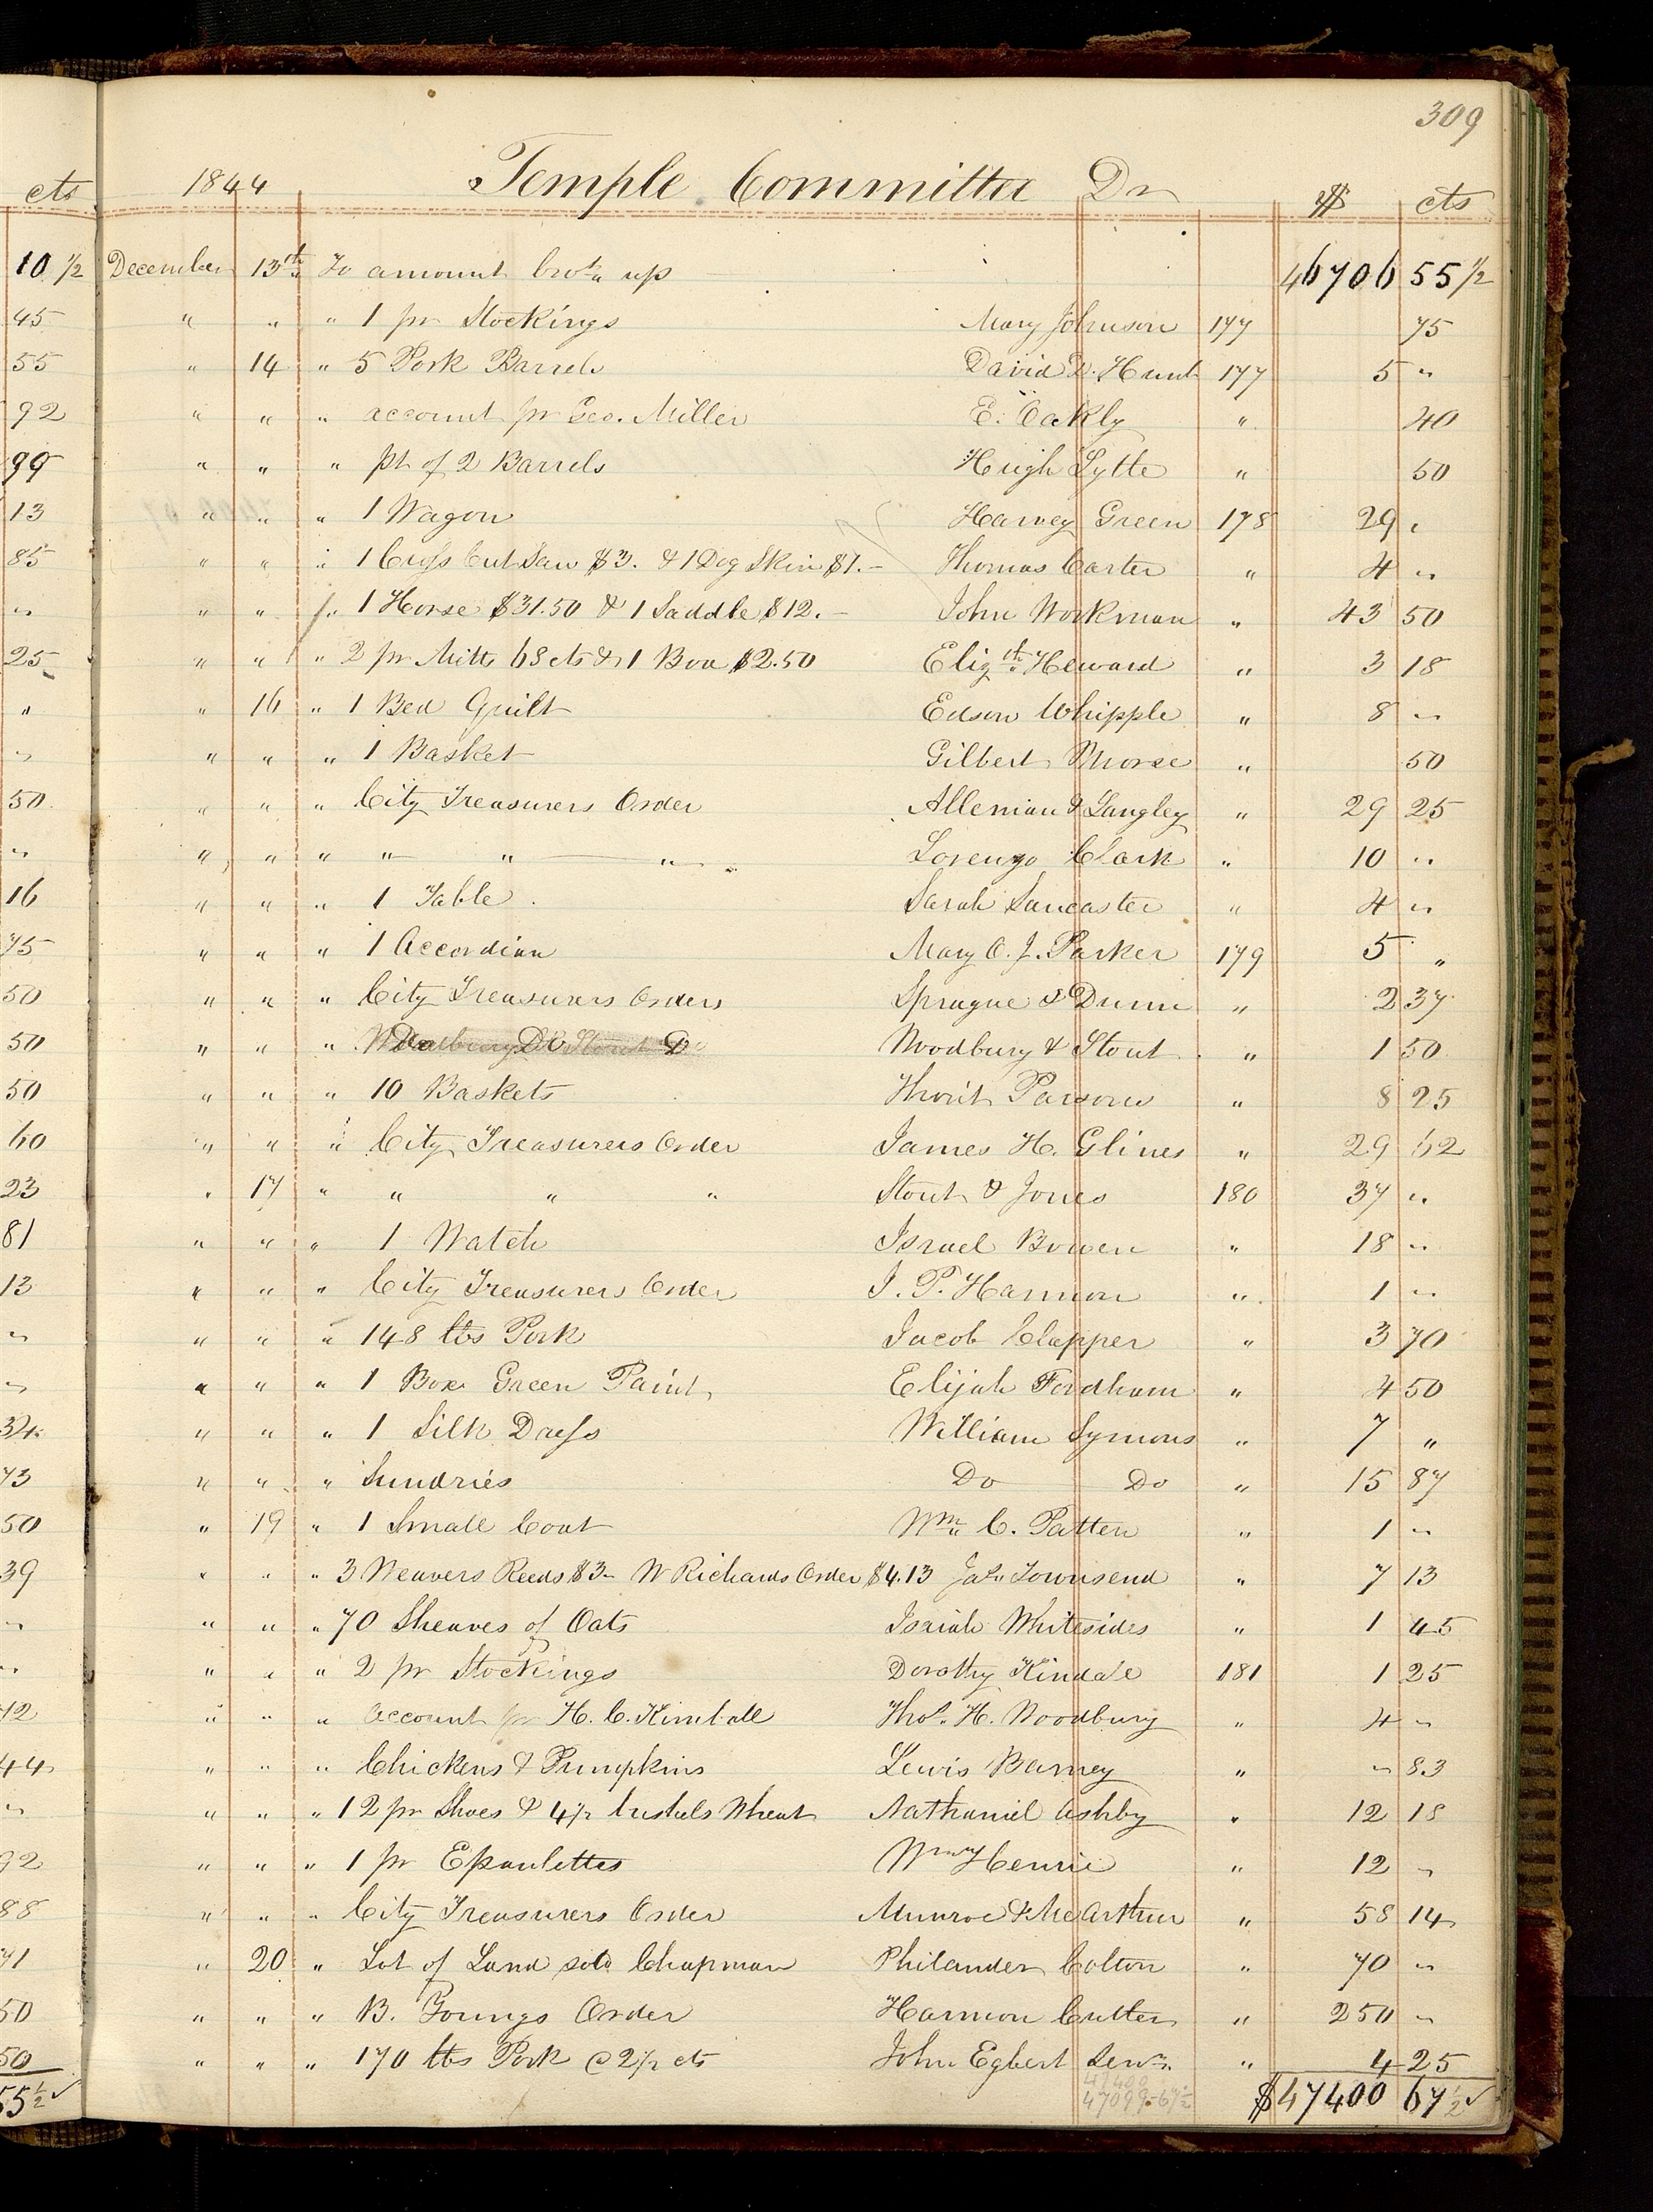 309
cts 1844 Temple Committee Dr $ cts
10 1/2 December 13th To amount brot up 46706 55 1/2
45 " " " 1 pr Stockings Mary Johnson 177 75
55 " 14 " 5 Pork Barrels David D. Hunt 177 5 "
92 " " " account pr Geo. Miller E. Oakly " 40
99 " " " pt of 2 Barrels Hugh Lytte " 50
13 " " " 1 Wagon Harvey Green 178 29 "
85 " " " 1 Cross Cut Saw $3. & 1 Dog Skin $1.- Thomas Carter " 4 "
" " " " 1 Horse $31.50 & 1 Saddle $12.- John Workman " 43 50
25 " " " 2 pr Mitts 68 cts & 1 Boa $2.50 Elizth Heward " 3 18
" " 16 " 1 Bed Quilt Edson Whipple " 8 "
" " " " 1 Basket Gilbert Morse " 50
50 " " " City Treasurers Order Allenian & Langley " 29 25
" " " " " " " Lorenzo Clark " 10 "
16 " " " 1 Table Sarah Lancaster " 4 "
75 " " " 1 Accordian Mary A. J. Parker 179 5 "
50 " " " City Treasurers Orders Sprague & Dunn " 2 37
50 " " " Do Do Do Woodbury & Stout " 1 50
50 " " " 10 Baskets Thorit Parsons " 8 25
60 " " " City Treasurers Order James H. Glines " 29 62
23 " 17 " " " " Stout & Jones 180 37 "
81 " " " 1 Watch Israel Bowen " 18 "
13 " " " City Treasurers Order J. P. Harmon " 1 "
" " " " 148 lbs Pork Jacob Clapper " 3 70
" " " " 1 Box Green Paint Elijah Fordham " 4 50
34 " " " 1 Silk Dress William Symons " 7 "
73 " " " Sundries Do Do " 15 87
50 " 19 " 1 Small Coat Wm C. Patten " 1 "
39 " " " 3 Weavers Reeds $3- W Richards Order $4.13 Jas Townsend " 7 13
" " " " 70 Sheaves of Oats Isaiah Whitesides " 1 45
" " " " 2 pr Stockings Dorothy Kindale 181 1 25
12 " " " account pr H. C. Kimball Thos. H. Woodbury " 4 "
44 " " " Chickens & Pumpkins Lewis Barney " " 83
" " " " 12 pr Shoes & 4 1/2 bushels Wheat Nathaniel Ashby " 12 18
92 " " " 1 pr Epaulettes Wm Henrie " 12 "
88 " " " City Treasurers Order Munroe & McArthur " 58 14
71 " 20 " Lot of Land sold Chapman Philander Colton " 70 "
50 " " " B. Youngs Order Harmon Cutler " 250 "
50 " " " 170 lbs Pork @ 2 1/2 cts John Egbert Senr. " 4 25
47400
55 1/2 47099-67 1/2 $47400 67 1/2